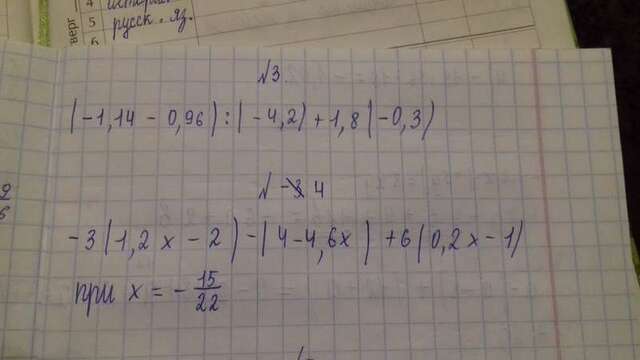 4
5 русск. яз.
№3
(-1,14 - 0,96) : (-4,2) + 1,8 (-0,3)
№ 4
-3(1,2x - 2) - (4 - 4,6x) + 6(0,2x - 1)
при x = - 15/22